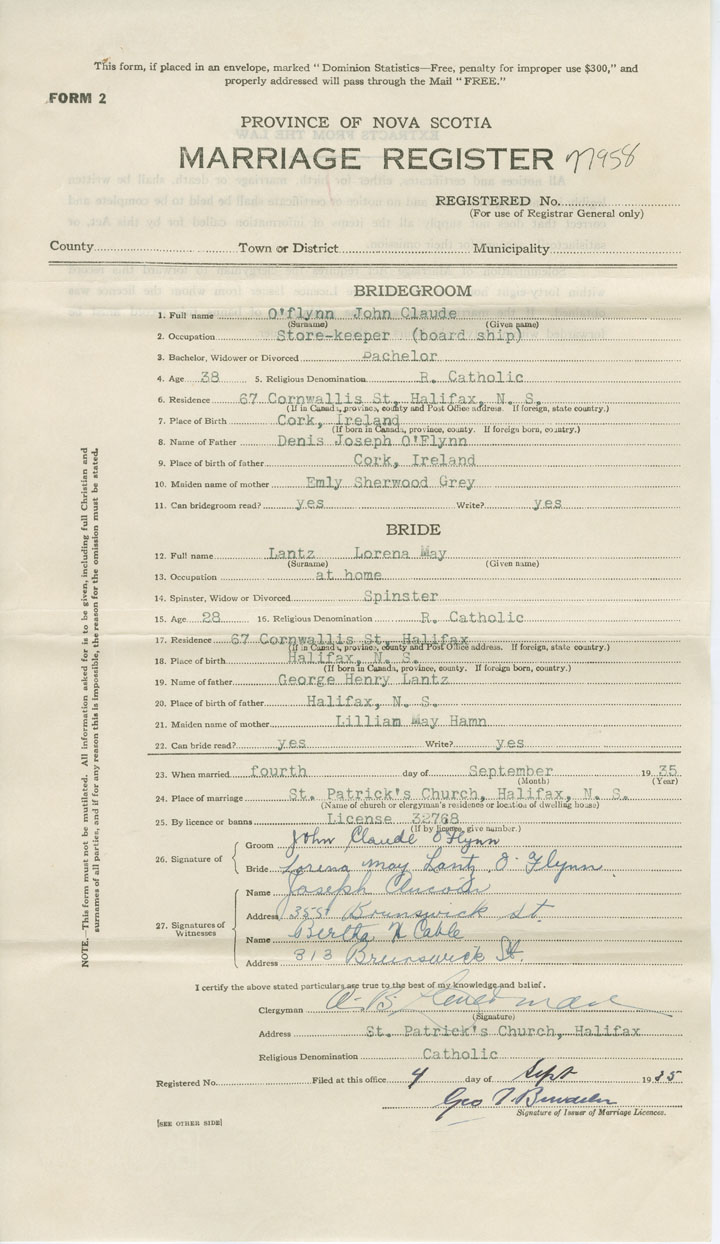 This form, if placed in an envelope, marked "Dominion Statistics—Free, penalty for improper use $300," and
properly addressed will pass through the Mail "FREE."
FORM 2
PROVINCE OF NOVA SCOTIA
MARRIAGE REGISTER 77958
REGISTERED No.
(For use of Registrar General only)
County Town or District Municipality
BRIDEGROOM
1. Full name O'flynn John Claude
(Surname) (Given name)
2. Occupation Store-keeper (board ship)
3. Bachelor, Widower or Divorced Bachelor
4. Age 38 5. Religious Denomination R. Catholic
6. Residence 67 Cornwallis St. Halifax, N. S.
(If in Canada, province, county and Post Office address. If foreign, state country.)
7. Place of Birth Cork, Ireland
(If born in Canada, province, county. If foreign born, country.)
8. Name of Father Denis Joseph O'Flynn
9. Place of birth of father Cork, Ireland
10. Maiden name of mother Emly Sherwood Grey
11. Can bridegroom read? yes Write? yes
BRIDE
12. Full name Lantz Lorena May
(Surname) (Given name)
13. Occupation at home
14. Spinster, Widow or Divorced Spinster
15. Age 28 16. Religious Denomination R. Catholic
17. Residence 67 Cornwallis St. Halifax
(If in Canada, province, county and Post Office address. If foreign, state country.)
18. Place of birth Halifax, N. S.
(If born in Canada, province, county. If foreign born, country.)
19. Name of father George Henry Lantz
20. Place of birth of father Halifax, N. S.
21. Maiden name of mother Lilliam May Hamn
22. Can bride read? yes Write? yes
23. When married fourth day of September 1935
(Month) (Year)
24. Place of marriage St. Patrick's Church, Halifax, N. S.
(Name of church or clergyman's residence or location of dwelling house)
25. By licence or banns License 32768
(If by licence, give number.)
26. Signature of
Groom John Claude O'Flynn
Bride Lorena May Lantz O'Flynn
27. Signatures of Witnesses
Name Joseph
Address 355 Brunswick St.
Name Bertha H Cable
Address 313 Brunswick St.
I certify the above stated particulars are true to the best of my knowledge and belief.
Clergyman
(Signature)
Address St. Patrick's Church, Halifax
Religious Denomination Catholic
Registered No. Filed at this office 4 day of Sept 1935
Geo
Signature of Issuer of Marriage Licences.
[SEE OTHER SIDE]
NOTE.—This form must not be mutilated. All information asked for is to be given, including full Christian and
surnames of all parties, and if for any reason this is impossible, the reason for the omission must be stated.